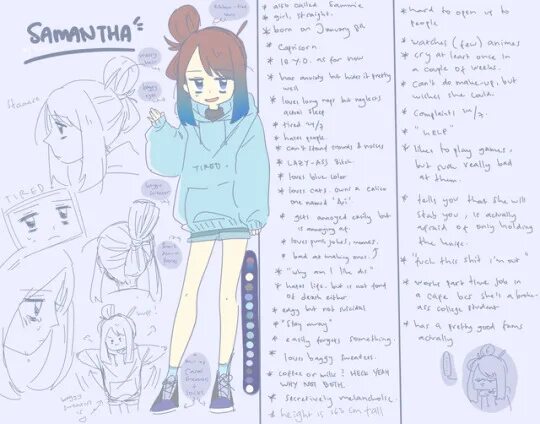 SAMANTHA
TIRED.
TIRED
* also called Sammie
* girl, straight.
* born on January 08
* Capricorn
* 18 Y.O. as for now
* has anxiety but hides it pretty
well
* loves long naps but neglects
actual sleep
* tired 24/7
* hates people.
* can't stand crowds & noises
* LAZY-ASS Bitch.
* loves blue color
* loves cats. owns a calico
one named
* gets annoyed easily but is
annoying af.
* loves puns, jokes, memes.
* bad at making ones.
* "why am I like dis"
* hates life. but is not fond
of death either.
* edgy but not suicidal
* "Stay away"
* easily forgets something.
* loves baggy sweaters.
* coffee or milk? HECK YEAH
WHY NOT BOTH.
* secretively melancholic.
* height is 163 cm tall
* hard to open up to
people
* watches (few) animes
* cry at least once in
a couple of weeks.
* Can't do make-up, but
wishes she could.
* complaints 24/7.
* "HELP"
* likes to play games,
but suck really bad
at them.
* tells you that she will
stab you, is actually
afraid of only holding
the knife.
* "fuck this shit i'm out"
* works part time job in
a cafe bcs she's a broke-
ass college student.
* has a pretty good fams
actually